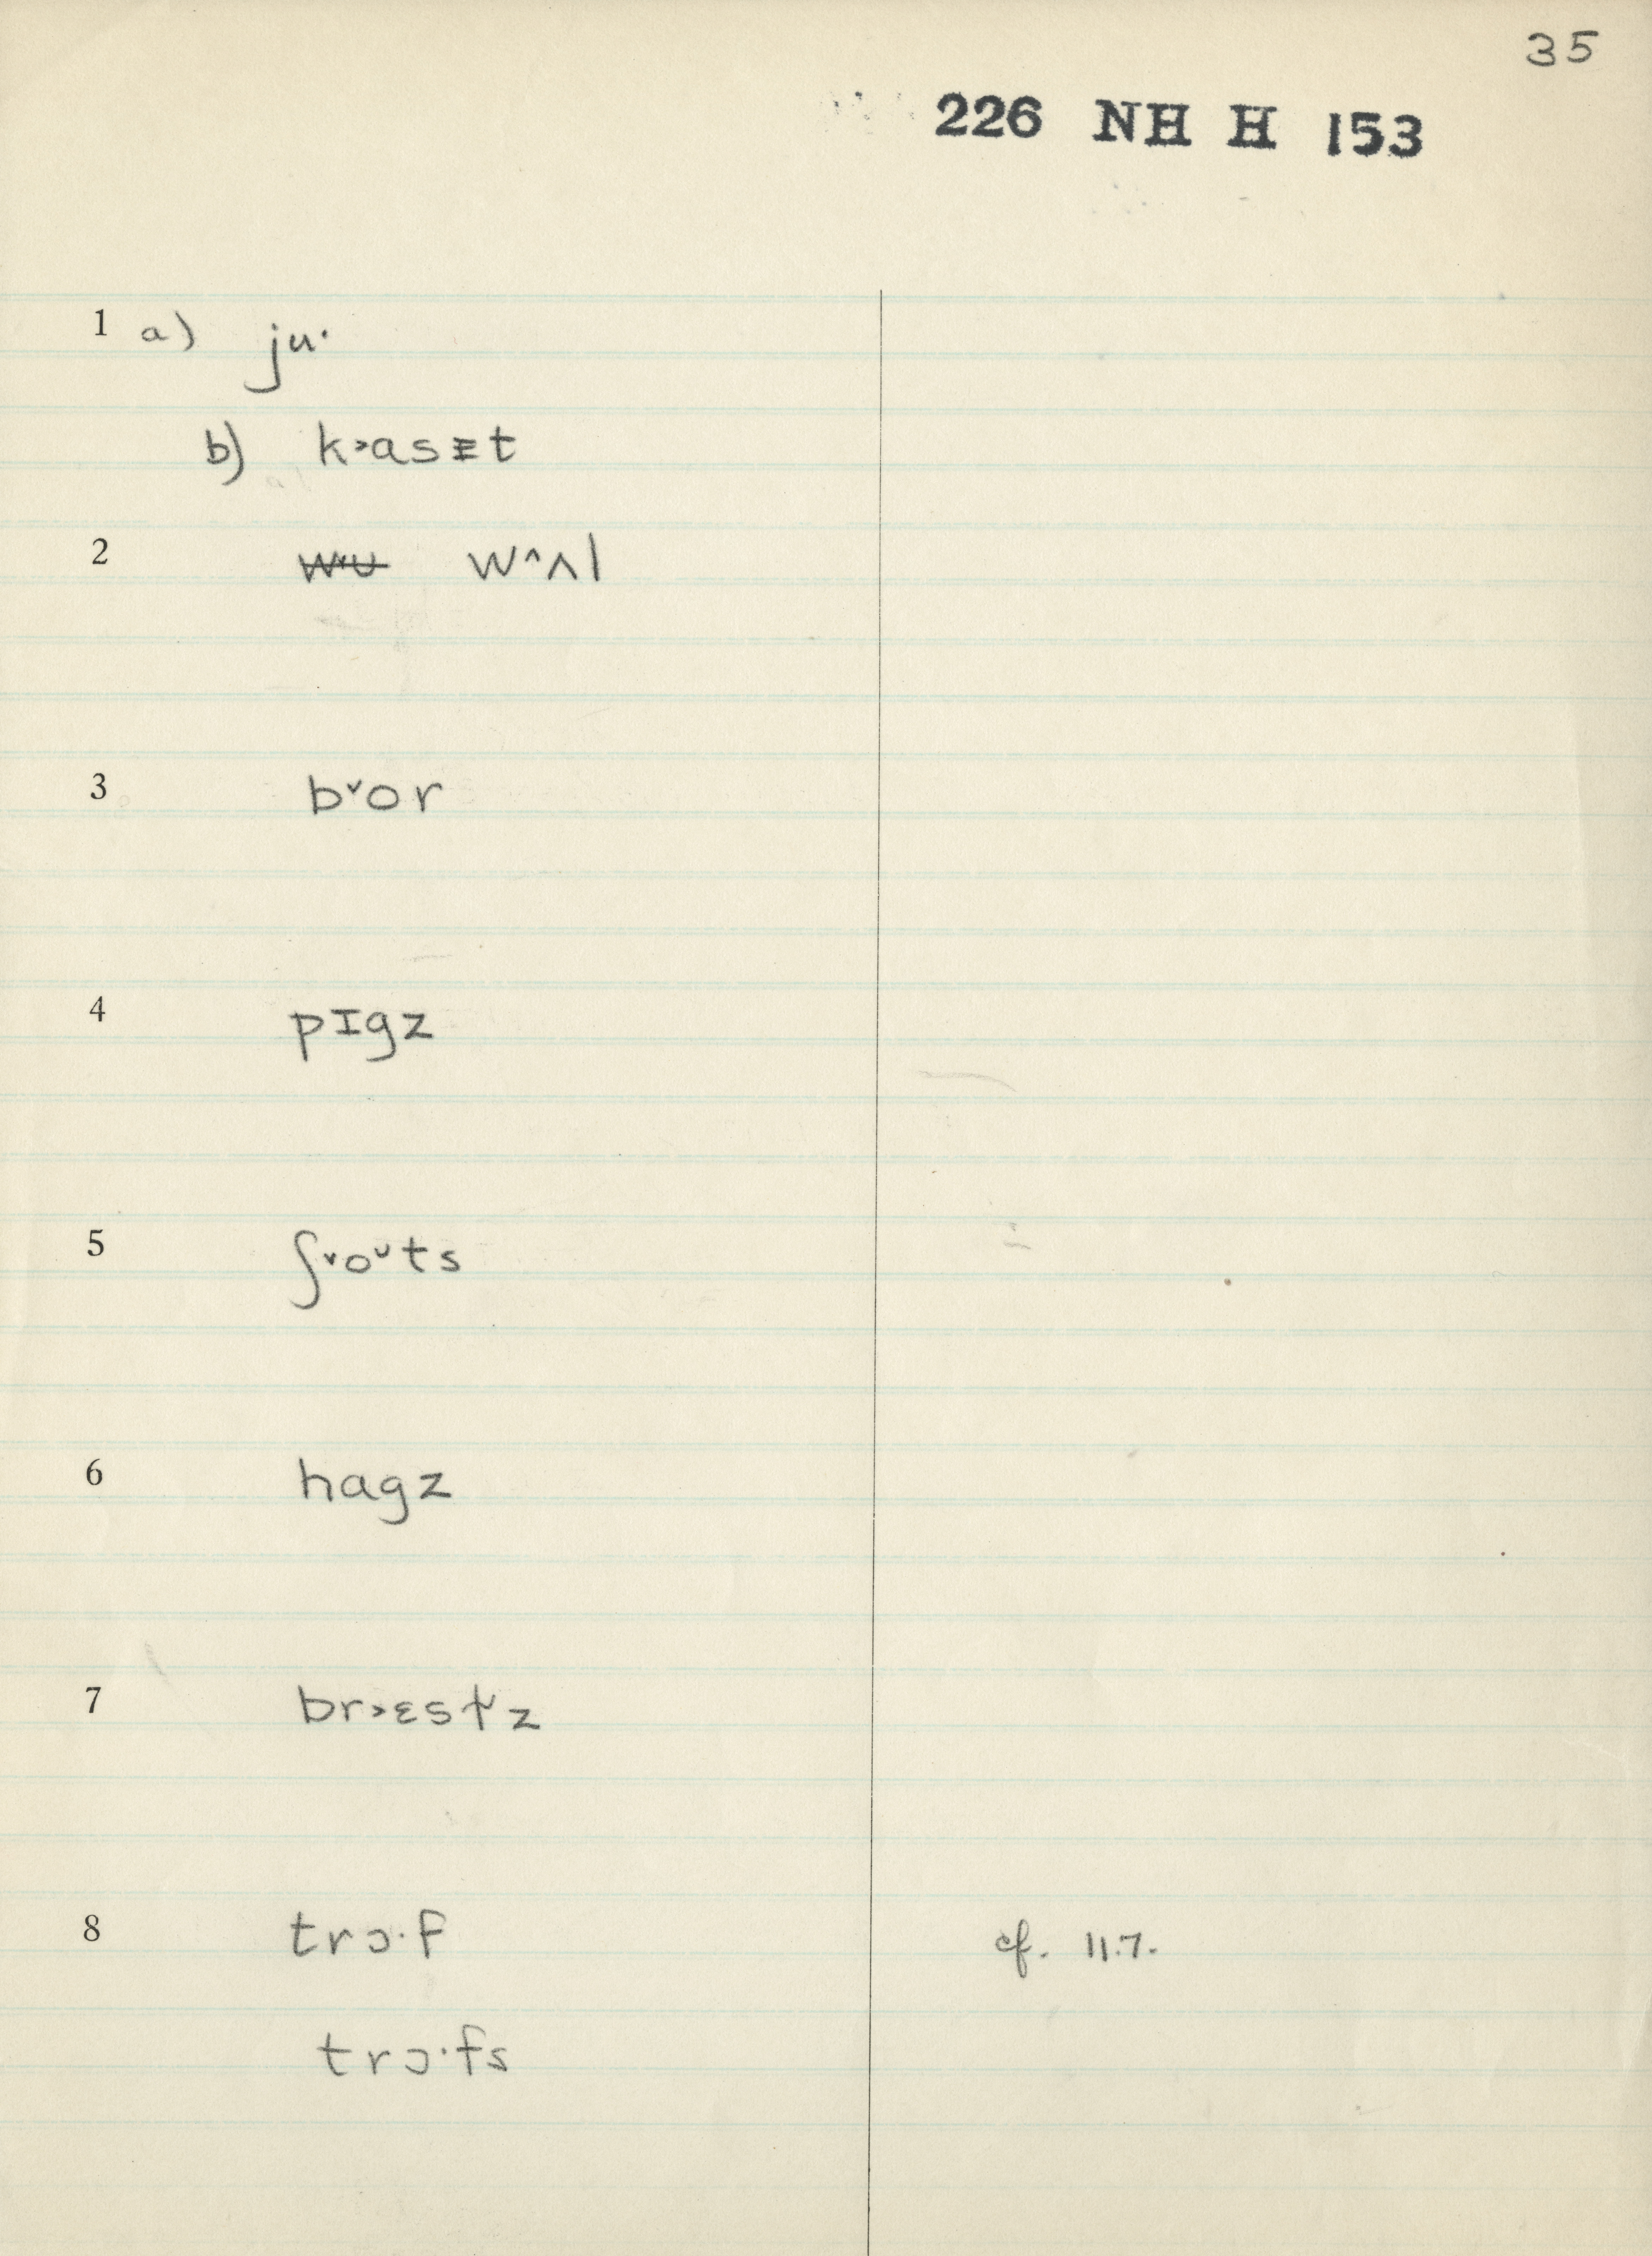 35
226 NH H 153
1 a) ju·
b) k˃asᵻt
2 ʌ w^ʌl
3 b˅or
4 pɪgz
5 ʃ˅oᵘts
6 hagz
7 br˃ɛst˅z
8 trɔ·f cf. 11.7.
trɔ·fs